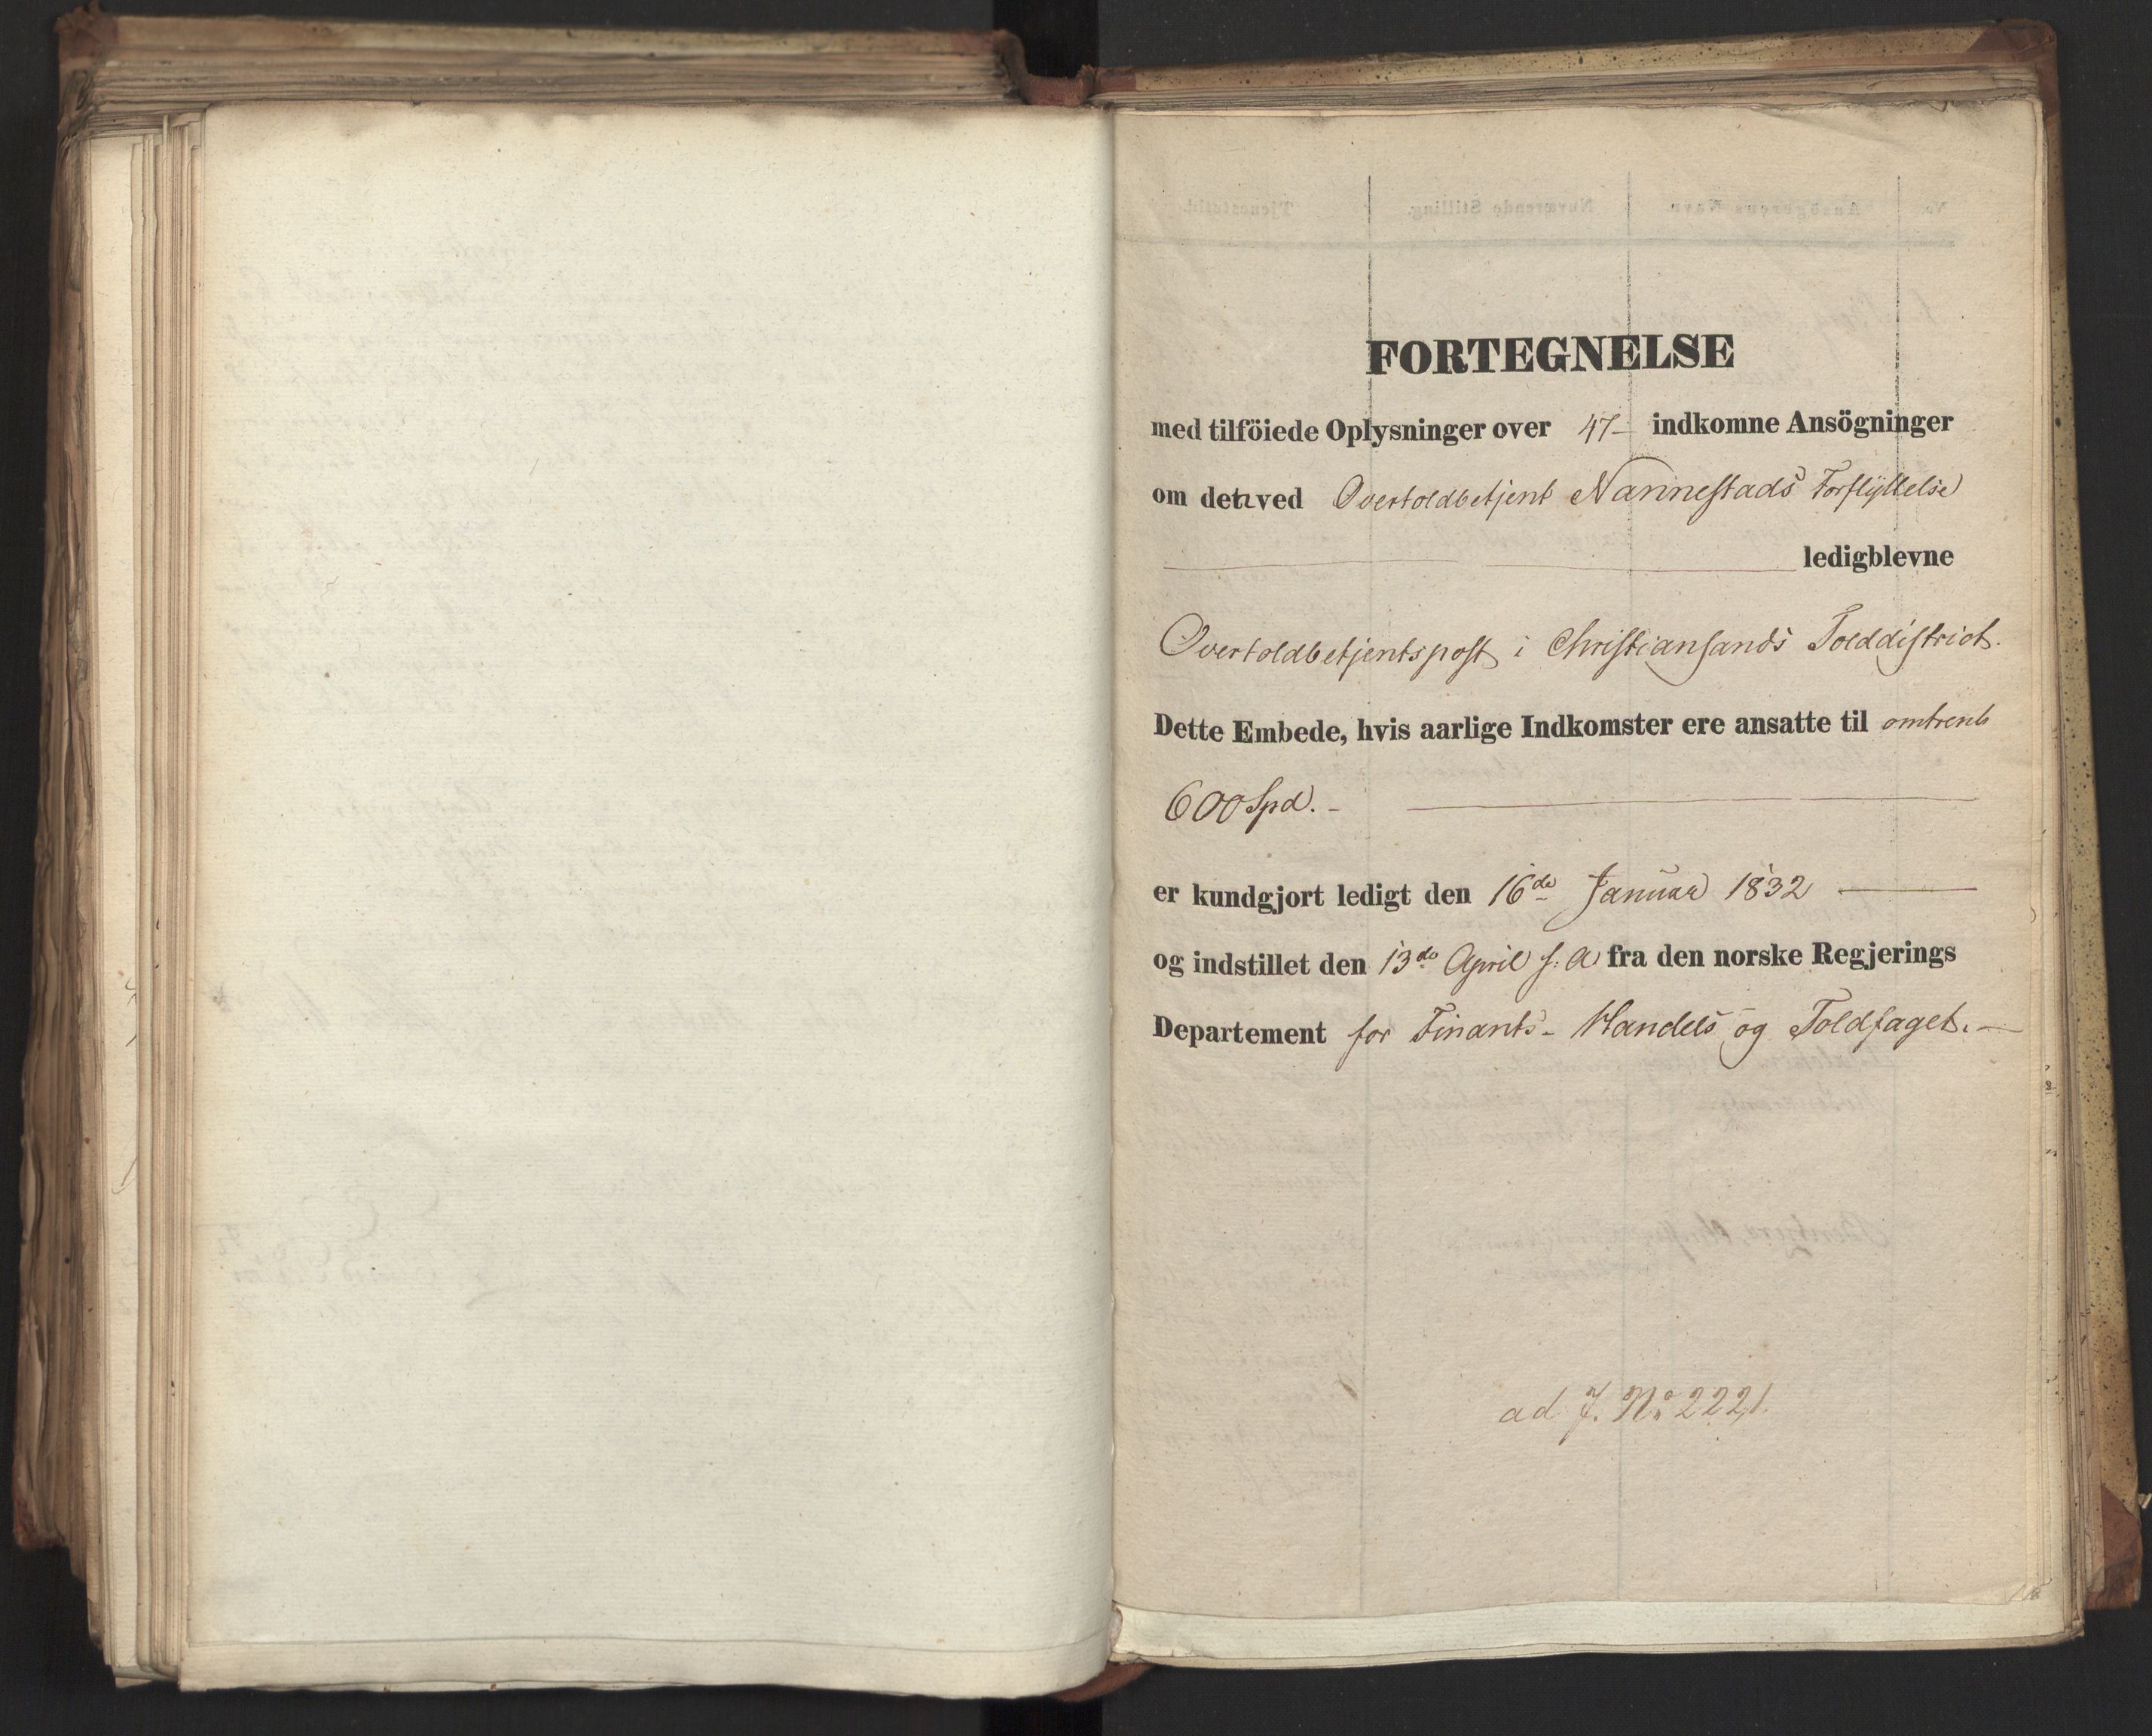 FORTEGNELSE
med tilföiede Oplysninger over 47- indkomne Ansögninger
om den ved Overtoldbetjent Nannestads Forflyttelse
ledigblevne
Overtoldbetjentspost i Christiansands Tolddistrict.
Dette Embede, hvis aarlige Indkomster ere ansatte til omtrent
600 Spd. -
er kundgjort ledigt den 16de Januar 1832
og indstillet den 13de April s: A fra den norske Regjerings
Departement for Finants- Handels og Toldfaget. -
ad J. No 2221.